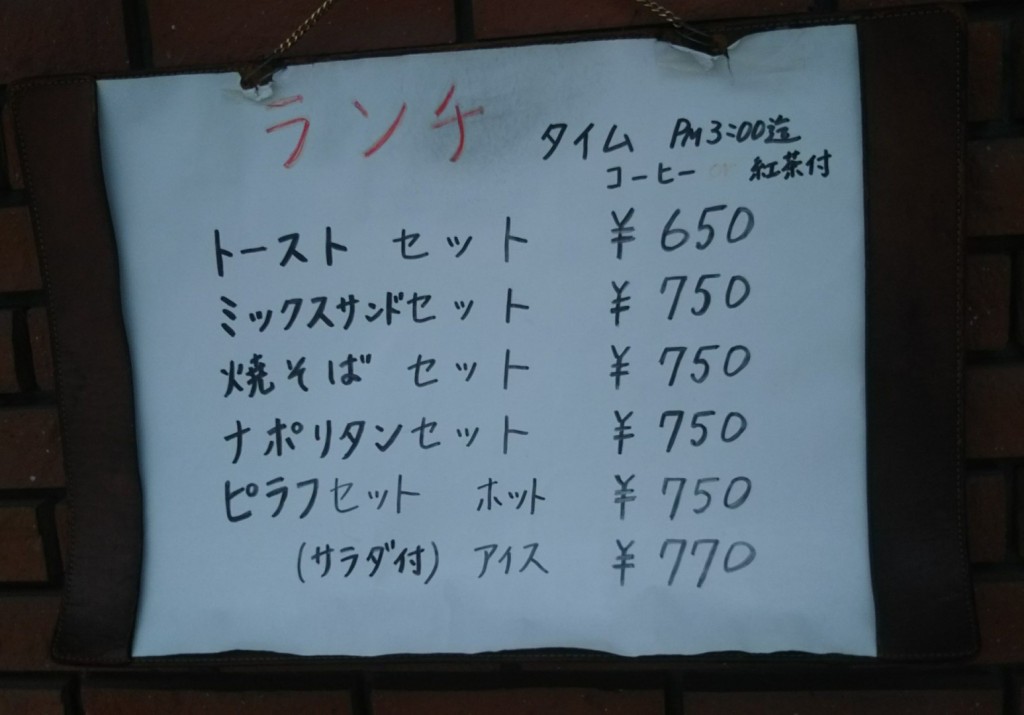 ランチ タイム PM3:00迄
コーヒー or 紅茶付
トースト セット ¥650
ミックスサンドセット ¥750
焼そば セット ¥750
ナポリタンセット ¥750
ピラフセット ホット ¥750
(サラダ付) アイス ¥770